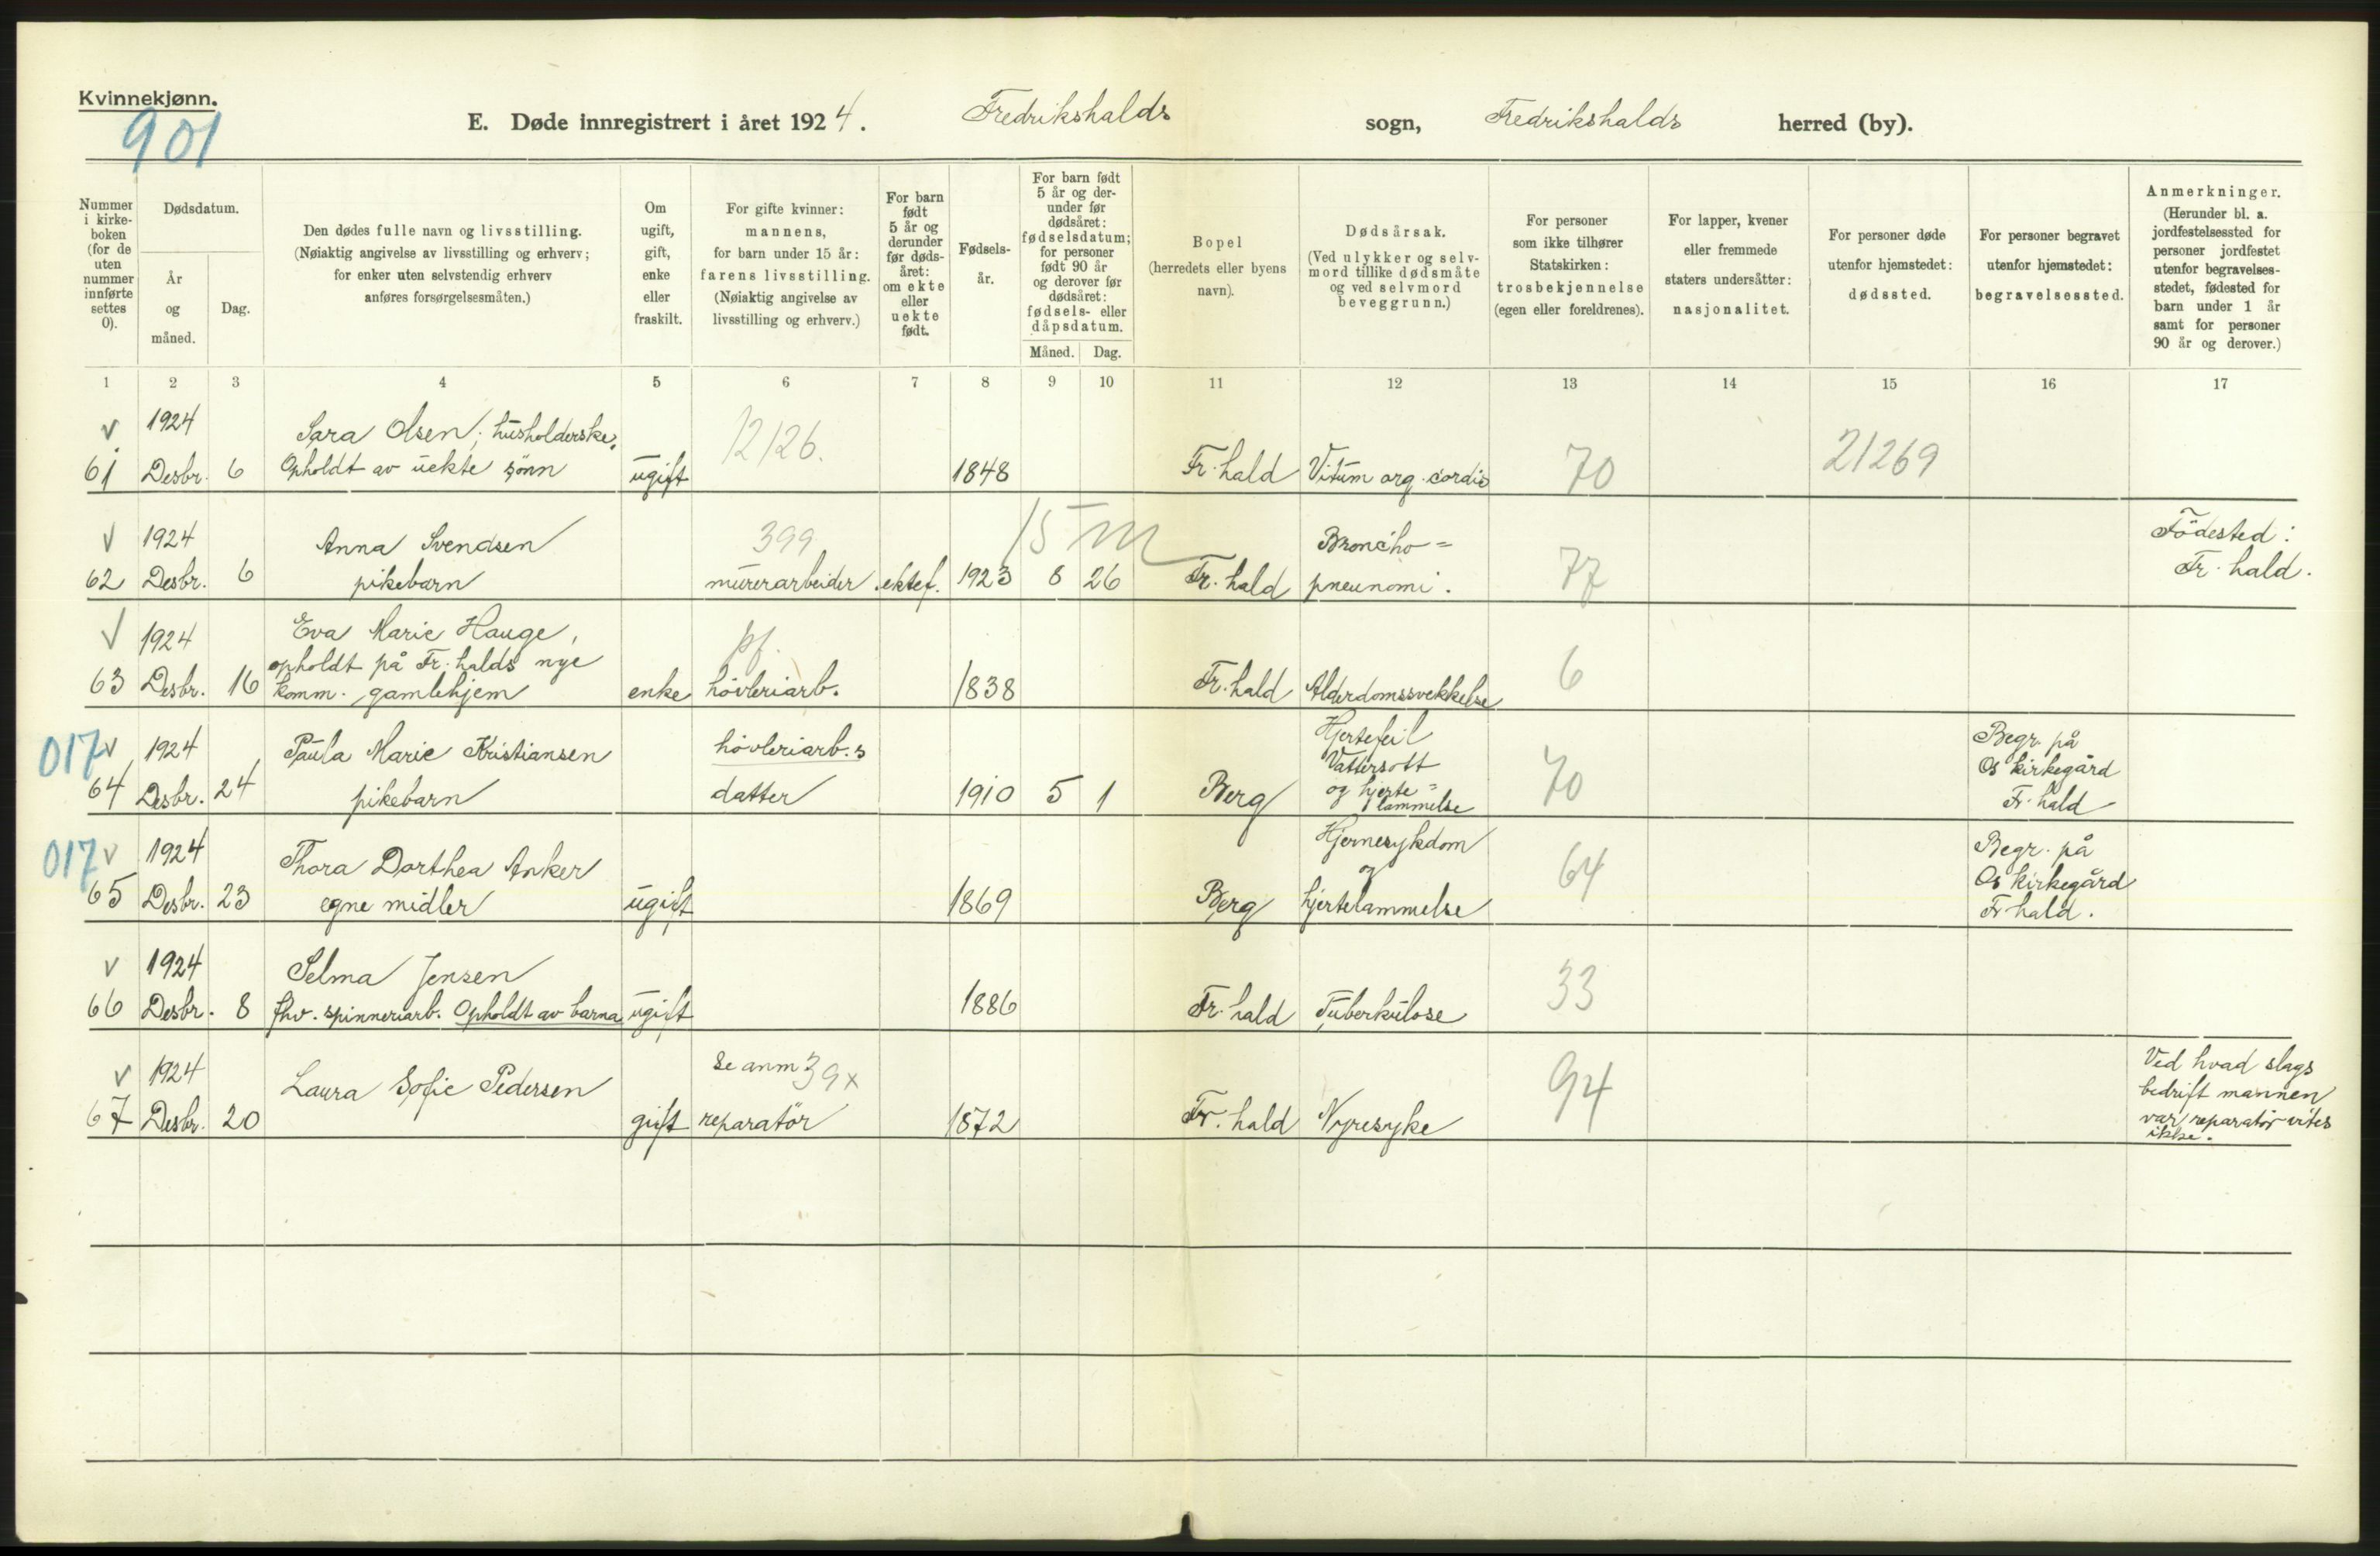 Kvinnekjønn.
901
E. Døde innregistrert i året 1924. Fredrikshalds sogn, Fredrikshalds herred (by).
Nummer
i kirke-
boken
(for de
uten
nummer
innførte
settes
0).
Dødsdatum.
År
og
måned.
Dag.
Den dødes fulle navn og livsstilling.
(Nøiaktig angivelse av livsstilling og erhverv;
for enker uten selvstendig erhverv
anføres forsørgelsesmåten.)
Om
ugift,
gift,
enke
eller
fraskilt.
For gifte kvinner:
mannens,
for barn under 15 år:
farens livsstilling.
(Nøiaktig angivelse av
livsstilling og erhverv.)
For barn
født
5 år og
derunder
før døds-
året:
om ekte
eller
uekte
født.
Fødsels-
år.
For barn født
5 år og der-
under før
dødsåret:
fødselsdatum;
for personer
født 90 år
og derover før
dødsåret:
fødsels- eller
dåpsdatum.
Måned. Dag.
Bopel
(herredets eller byens
navn).
Dødsårsak.
(Ved ulykker og selv-
mord tillike dødsmåte
og ved selvmord
beveggrunn.)
For personer
som ikke tilhører
Statskirken:
trosbekjennelse
(egen eller foreldrenes).
For lapper, kvener
eller fremmede
staters undersåtter:
nasjonalitet.
For personer døde
utenfor hjemstedet:
dødssted.
For personer begravet
utenfor hjemstedet:
begravelsessted.
Anmerkninger.
(Herunder bl. a.
jordfestelsessted for
personer jordfestet
utenfor begravelses-
stedet, fødested for
barn under 1 år
samt for personer
90 år og derover.)
1 2 3 4 5 6 7 8 9 10 11 12 13 14 15 16 17
v 1924 Sara Olsen, husholderske. 12126. 21269
61 Desbr. 6 Opholdt av uekte sønn ugift 1848 Fr.hald Vitum org. cordis 70
v 1924 Anna Svendsen 399 15 m Broncho= Födested:
62 Desbr. 6 pikebarn murerarbeider ektef. 1923 8 26 Fr. hald pneunomi. 77 Fr. hald.
v 1924 Eva Marie Hauge, pf.
opholdt på Fr.halds nye 6
63 Desbr. 16 komm. gamlehjem enke høvleriarb. 1838 Fr.hald Alderdomssvekkelse
017 v 1924 Paula Marie Kristiansen høvleriarb.s Hjertefeil Begr. på
Vattersott Os kirkegård
64 Desbr. 24 pikebarn datter 1910 5 1 Berg og hjerte= 70 Fr.hald
lammelse
017 v 1924 Thora Dorthea Anker Hjernesykdom 64 Begr. på
og Os kirkegård
65 Desbr. 23 egne midler ugift 1869 Berg hjertelammelse Fr hald.
v 1924 Selma Jensen 33
66 Desbr. 8 fhv. spinneriarb. Opholdt av barna ugift 1886 Fr. hald Tuberkulose
v 1924 Laura Sofie Pedersen Se anm 39x 94 Ved hvad slags
bedrift mannen
67 Desbr. 20 gift reparatör 1872 Fr. hald Nyresyke var reparatör vites
ikke.